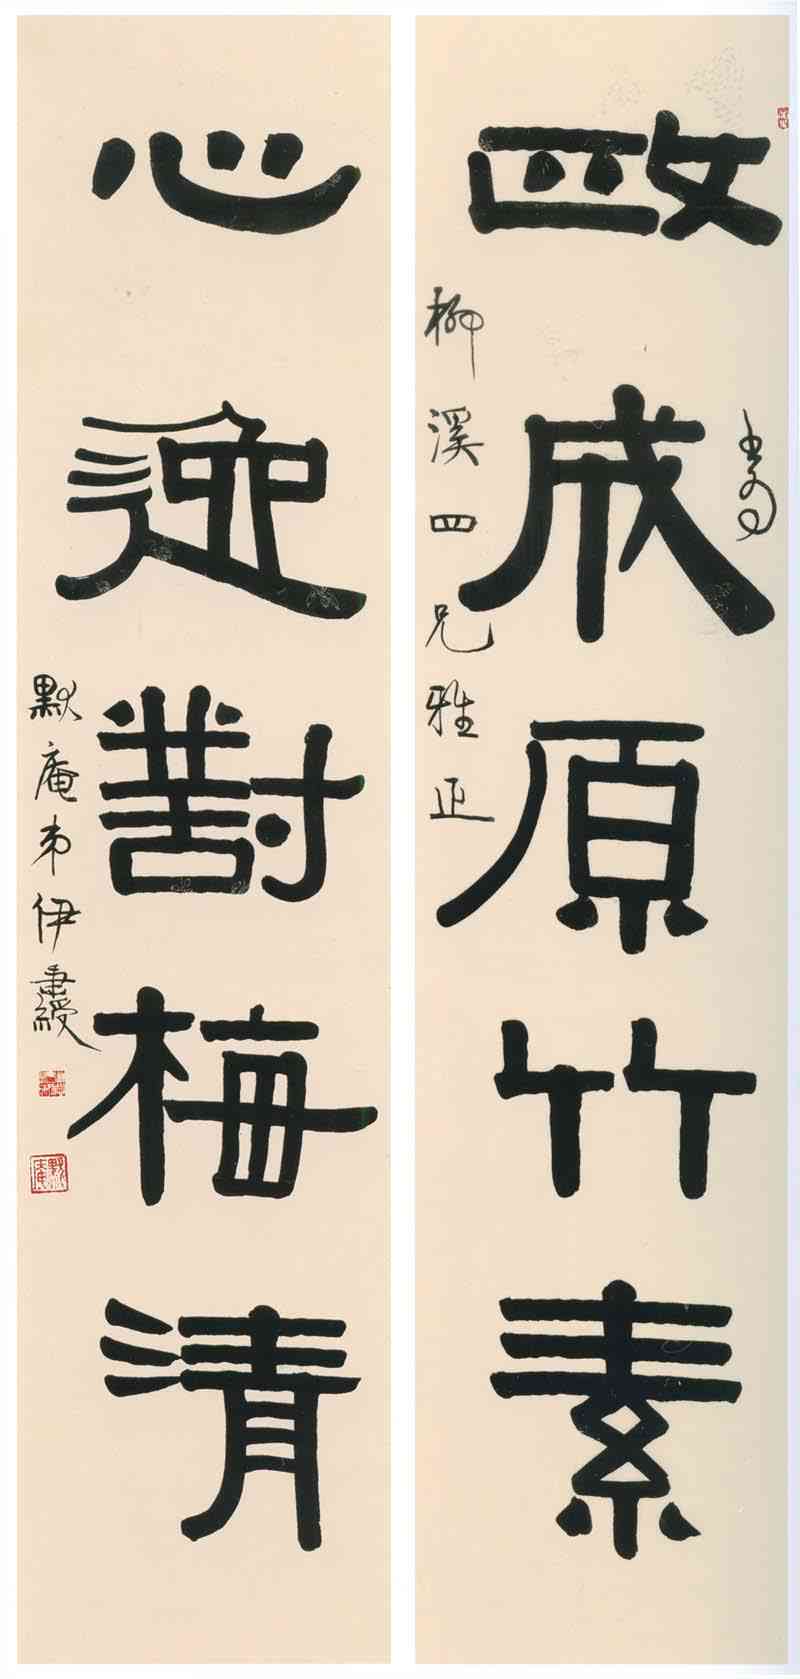 政成原竹素
書為
柳溪四兄雅正
心迹對梅清
默庵弟伊秉綬
默庵